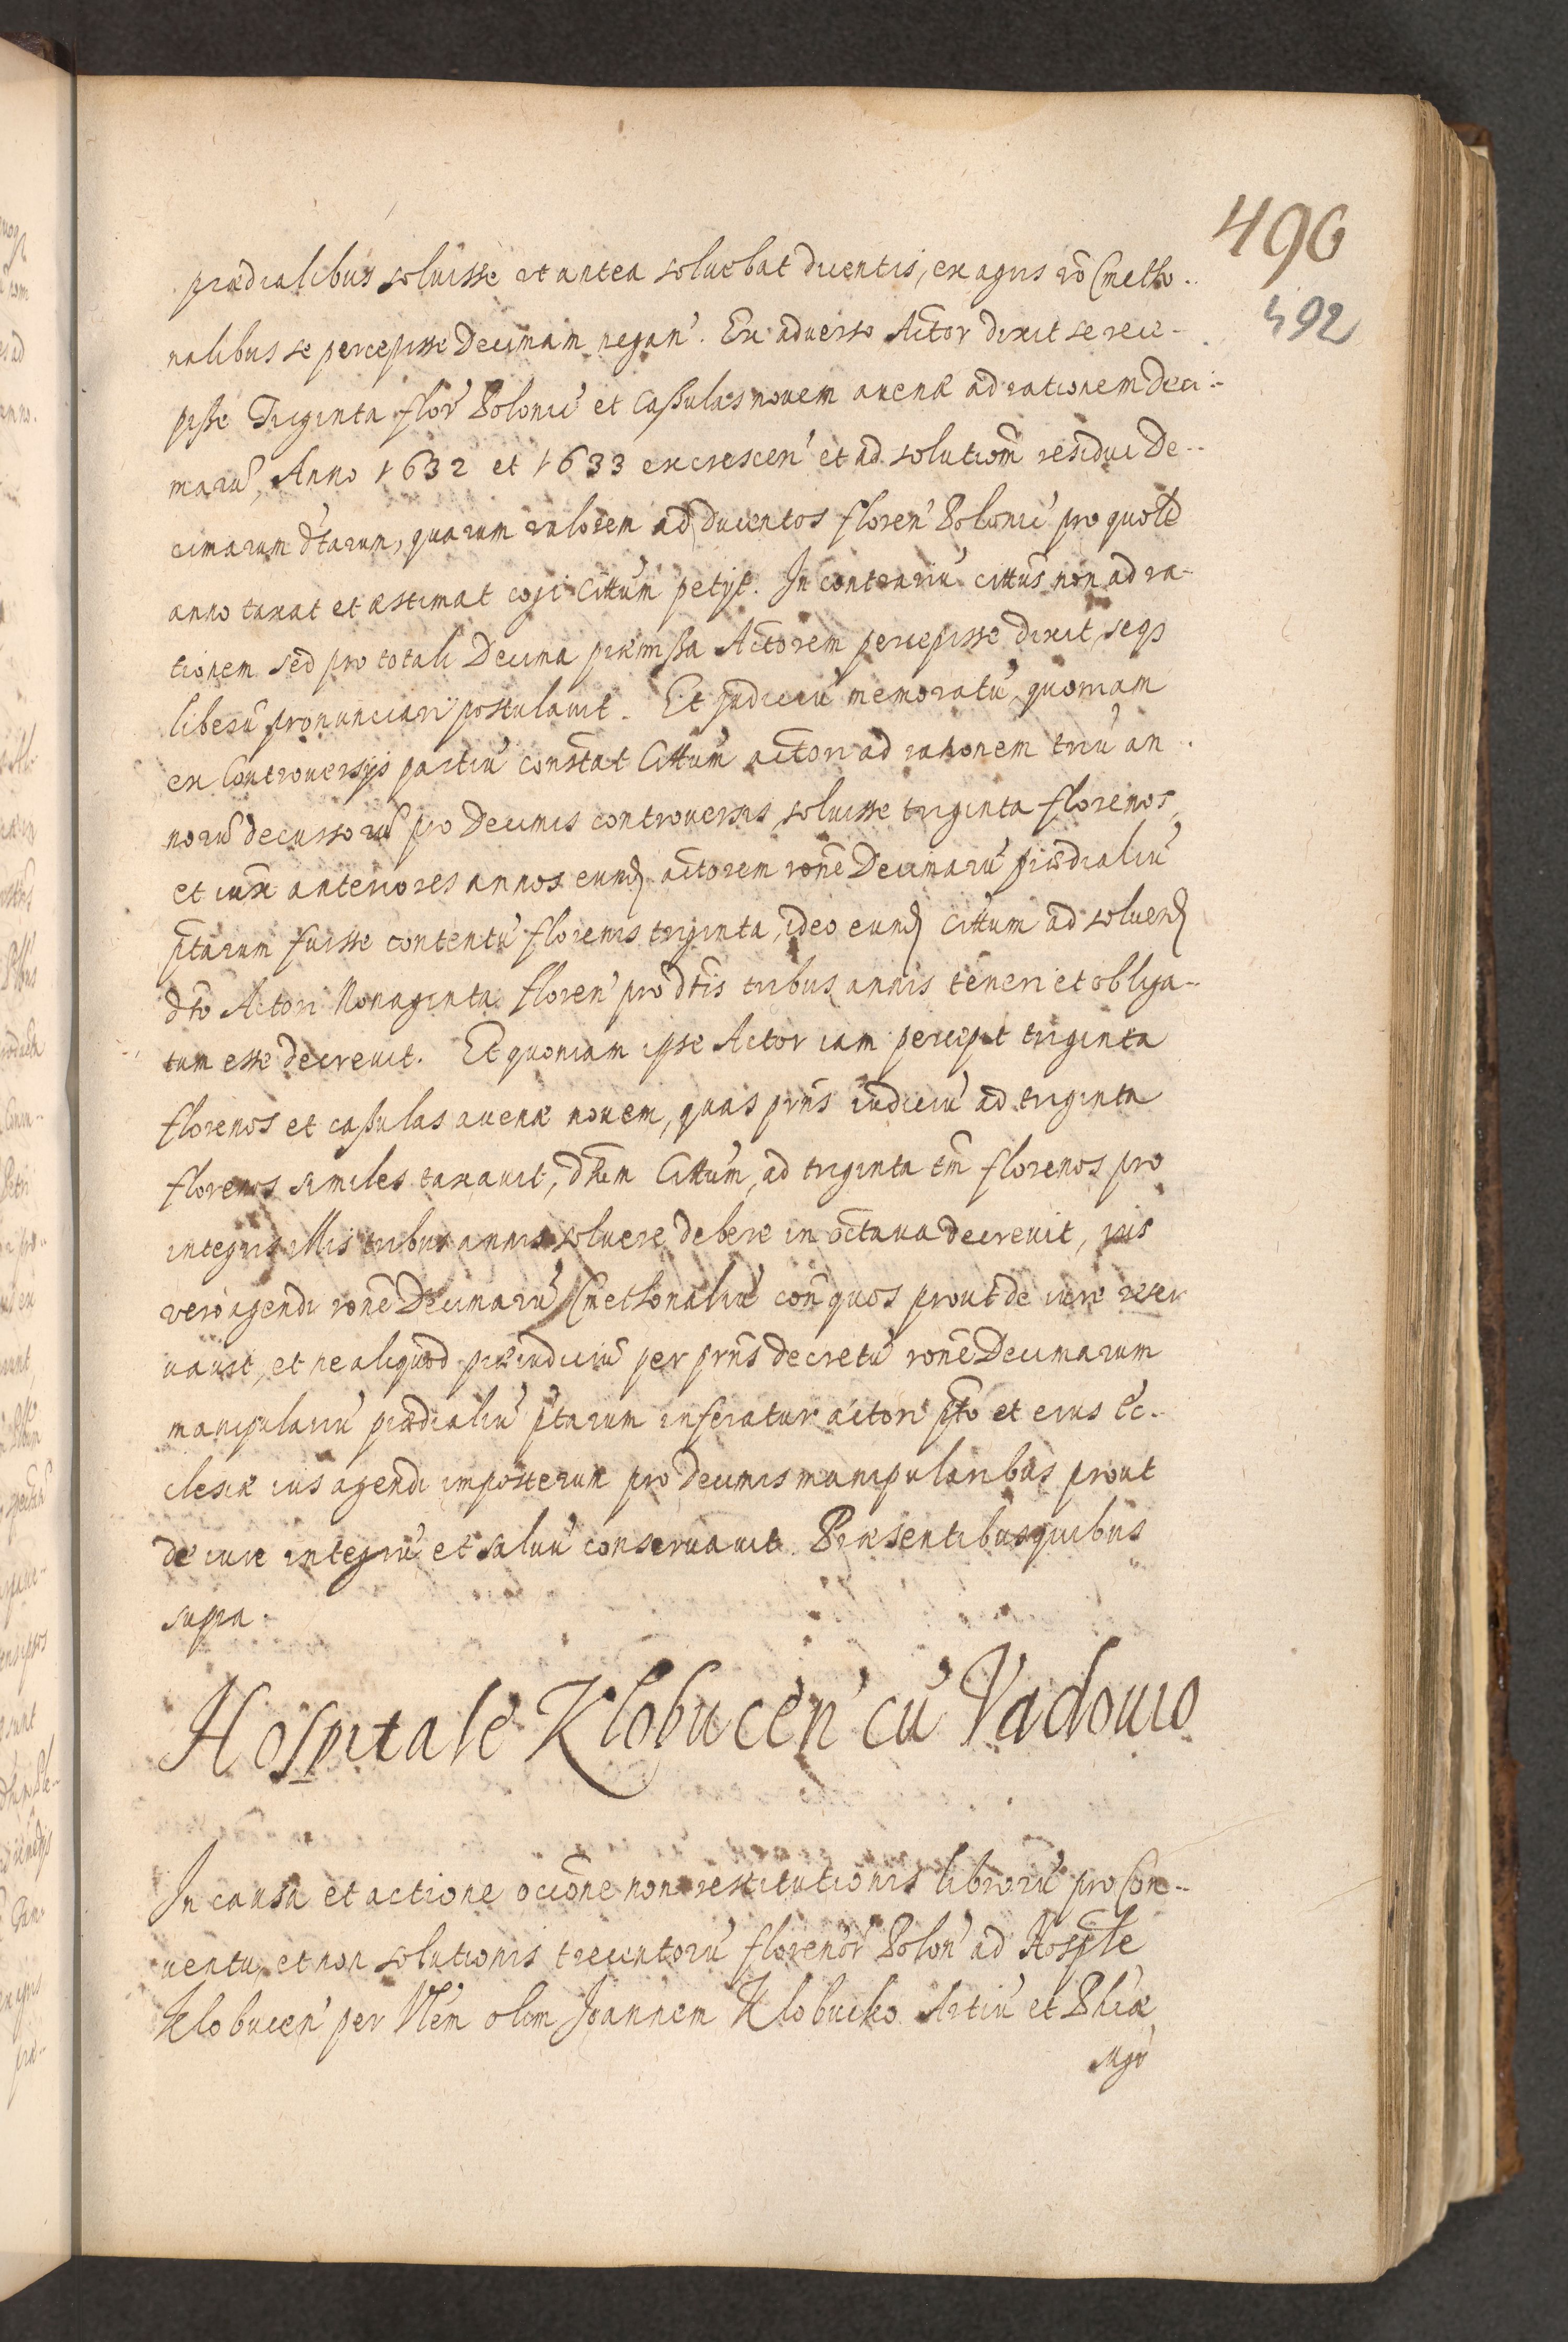 496
492
prædialibus soluisse ut antea soluebat dicentis, ex agris vō Cmetho-
nalibus se percepisse Decimam negan'. Ex aduerso Actor dixit se rece-
pisse Triginta flor' Polonic' et Cassulas nouem auenæ ad rationem deci-
marū Anno 1632 et 1633 excrescen' et ad solutionē residui De-
cimarum dtarum, quarum valorem ad ducentos floren' Polonic' pro quolt
anno taxat et æstimat cogi Cittum petijt. In contrariū cittus non ad ra-
tionem sed pro totali Decima præmissa Actorem percepisse dixit, seqз
liberū pronunciari postulauit. Et Judiciū memoratū quoniam
ex Controuersijs partiū constat Cittum actori ad rationem triū an-
norū decursorū pro Decimis controuersis soluisse triginta florenos,
et iuxta anteriores annos eund actorem rōne Decimarū prædialiū
ptarum fuisse contentū florenis triginta, ideo eund cittum ad soluend
dto Actori Nonaginta floren' pro dtis tribus annis teneri et obliga-
tum esse decreuit. Et quoniam ipse Actor iam percepit triginta
florenos et cassulas auenæ nouem, quas prñs iudiciū ad triginta
florenos similes taxauit, Cittum, ad triginta tm florenos pro
integris illis tribus annis soluere debere in octaua decreuit, ius
vero agendi rōne Decimarū Cmethonaliū con quos prout de iure reser
uauit, et ne aliquod præiudiciū per prñs decretū rōne Decimarum
manipulariū prædialiū ptarum inferatur actori pto et eius Ec-
clesiæ ius agendi imposterum pro Decimis manipularibus prout
de iure integrū et saluū conseruauit. Præsentibus quibus
supra.
Hospitale Klobucen' cū Vadouio
In causa et actione occōne non restitutionis librorū pro Con-
uentu, et non solutionis trecentorū florenor' Polon' ad Hosple
Klobucen' per Vlem olim Joannem Klobucko Artiū et Phiæ
Mgr̄